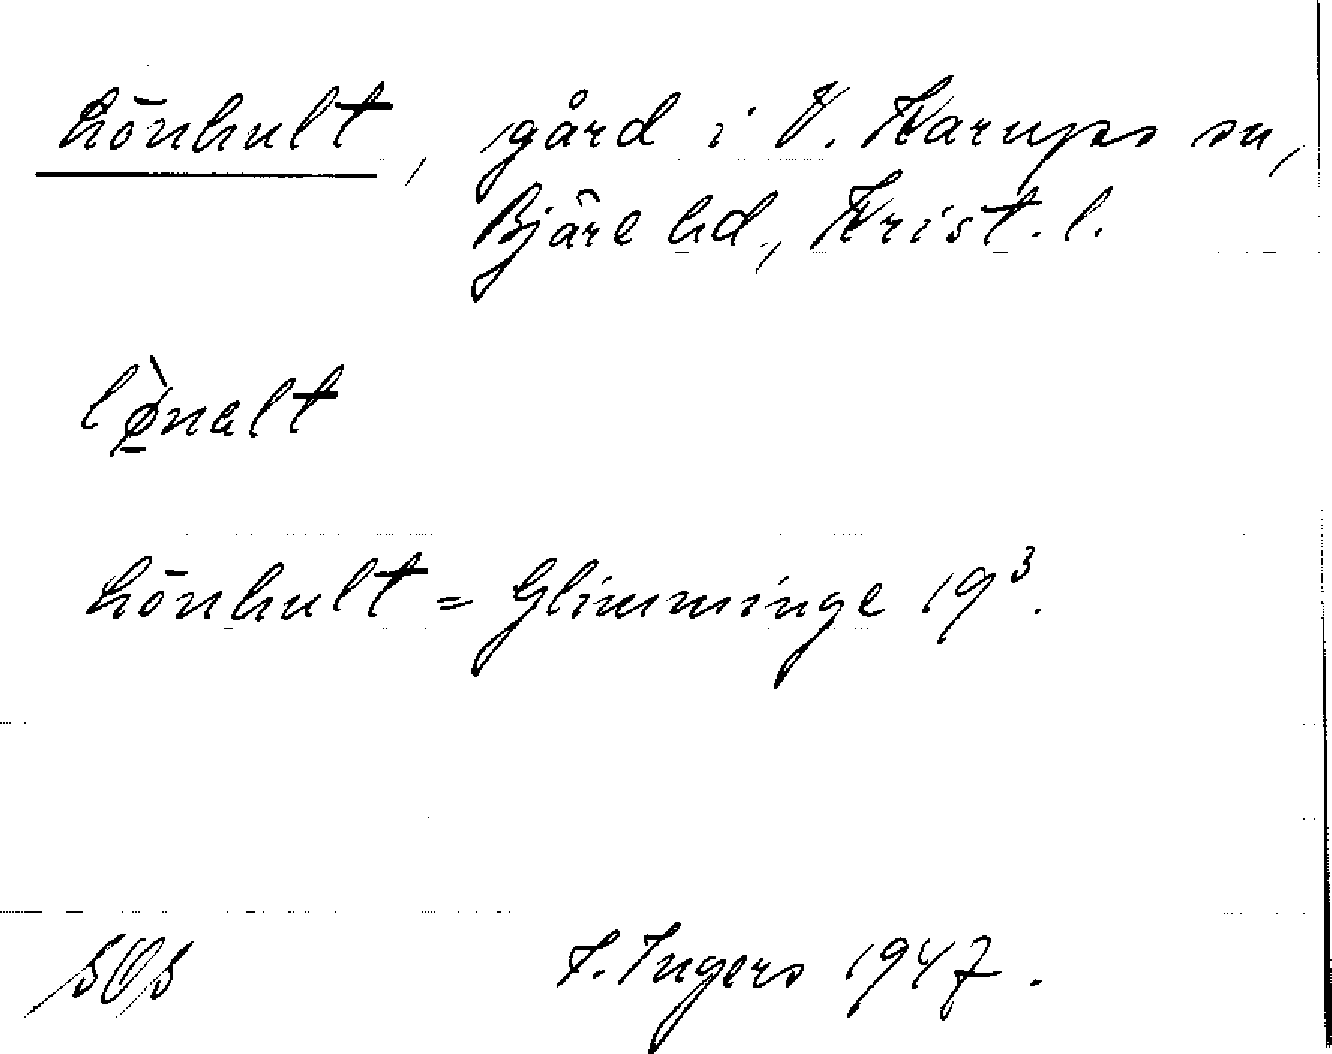 Lönhult, gård i V. Karups sn,
Bjäre hd, Krist. l.
lø̱̀nalt
Lönhult = Glimminge 19³.
I. Ingers 1947.